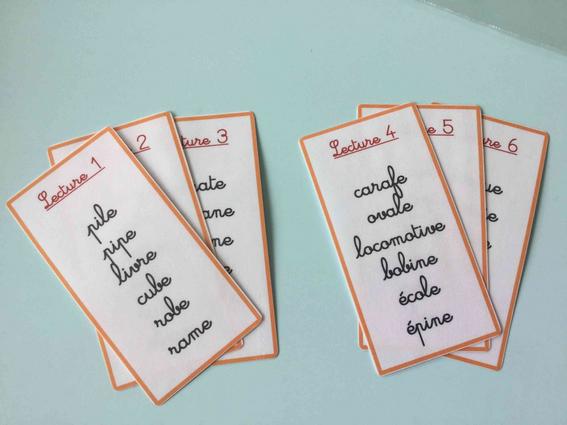 Lecture 1
pile
pipe
livre
cube
robe
rame
2
3
Lecture 4
carafe
ovale
locomotive
bobine
école
épine
5
6